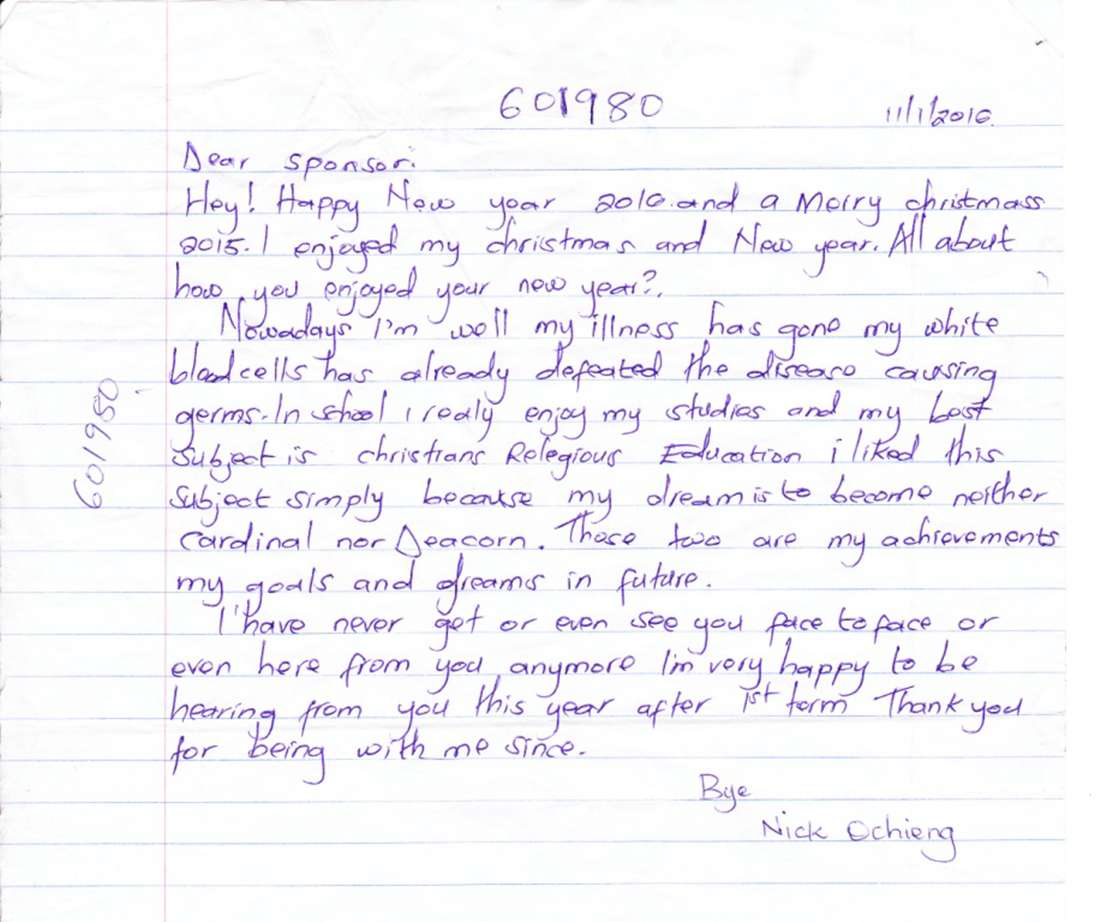 601980
11/1/2016.
Dear sponsor.
Hey! Happy New year 2016.and a Merry christmass
2015. I enjoyed my christmas and New year. All about
how you enjoyed your new year?.
Nowadays I'm well my illness has gone my white
blood cells has already defeated the disease causing
germs. In school i realy enjoy my studies and my best
subject is christians Relegious Education i liked this
subject simply because my dream is to become neither
cardinal nor Deacorn. These two are my achievements
my goals and dreams in future.
I'have never get or even see you face to face or
even here from you anymore I'm very happy to be
hearing from you this year after 1st term Thank you
for being with me since.
Bye
Nick Ochieng
601980